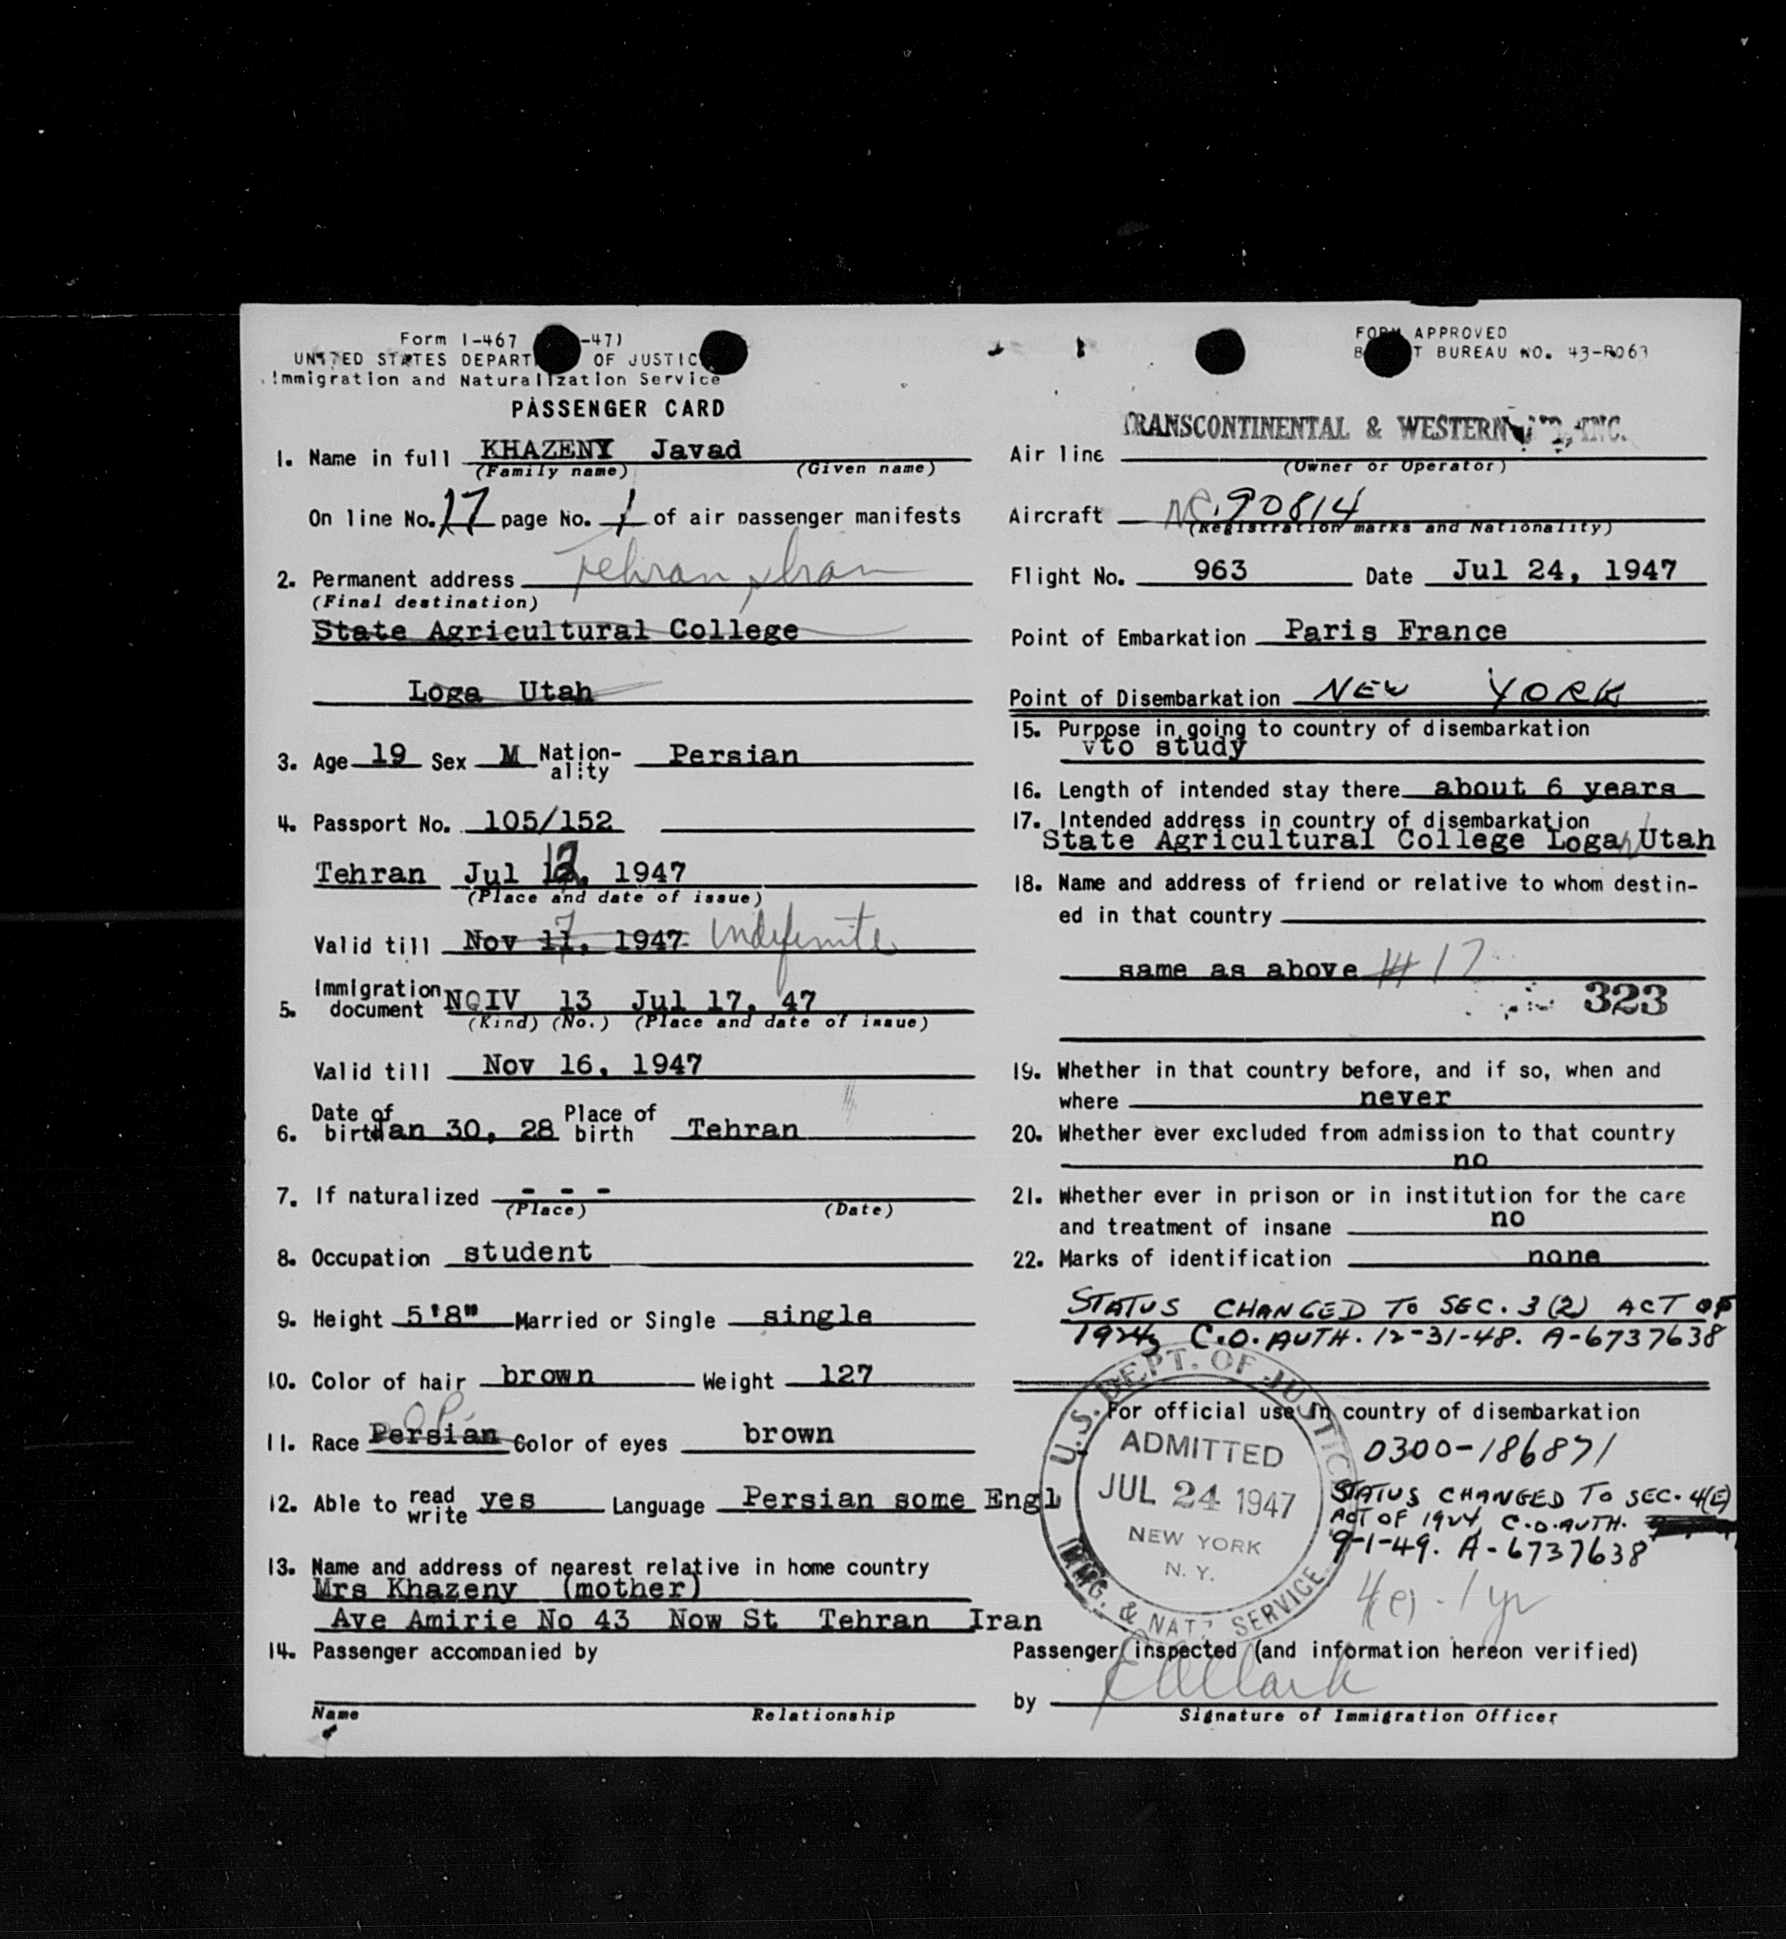 Form I-467 -47)
UNITED STATES DEPART OF JUSTIC
Immigration and Naturalization Service
PASSENGER CARD
1. Name in full KHAZENY Javad
(Family name) (Given name)
On line No. 17 page No. 1 of air passenger manifests
2. Permanent address Tehran, Iran
(Final destination)
State Agricultural College
Loga Utah
3. Age 19 Sex M Nation-ality Persian
4. Passport No. 105/152
Tehran Jul 12, 1947
(Place and date of issue)
Valid till Nov 17, 1947 indefinite
5. Immigration document NQIV 13 Jul 17, 47
(Kind) (No.) (Place and date of issue)
Valid till Nov 16, 1947
6. Date of birth Jan 30, 28 Place of birth Tehran
7. If naturalized - - -
(Place) (Date)
8. Occupation student
9. Height 5'8" Married or Single single
10. Color of hair brown Weight 127
11. Race Persian Color of eyes brown
12. Able to read write yes Language Persian some Engl
13. Name and address of nearest relative in home country
Mrs Khazeny (mother)
Ave Amirie No 43 Now St Tehran Iran
14. Passenger accompanied by
Name Relationship
FORM APPROVED
B T BUREAU NO. 43-R063
TRANSCONTINENTAL & WESTERN INC.
Air line
(Owner or Operator)
Aircraft NC 90814
(Registration marks and Nationality)
Flight No. 963 Date Jul 24, 1947
Point of Embarkation Paris France
Point of Disembarkation NEW YORK
15. Purpose in going to country of disembarkation
to study
16. Length of intended stay there about 6 years
17. Intended address in country of disembarkation
State Agricultural College Logan Utah
18. Name and address of friend or relative to whom destin-
ed in that country
same as above # 17
323
19. Whether in that country before, and if so, when and
where never
20. Whether ever excluded from admission to that country
no
21. Whether ever in prison or in institution for the care
and treatment of insane no
22. Marks of identification none
STATUS CHANGED TO SEC. 3(2) ACT OF
1924, C.O. AUTH. 12-31-48. A-6737638
For official use in country of disembarkation
U.S. DEPT. OF JUSTICE
ADMITTED
JUL 24 1947
NEW YORK
N. Y.
IMMG. & NATZ SERVICE
0300-186871
STATUS CHANGED TO SEC. 4(E)
ACT OF 1924, C.O. AUTH.
9-1-49. A-6737638
4(e) - 1 yr
Passenger inspected (and information hereon verified)
by
Signature of Immigration Officer